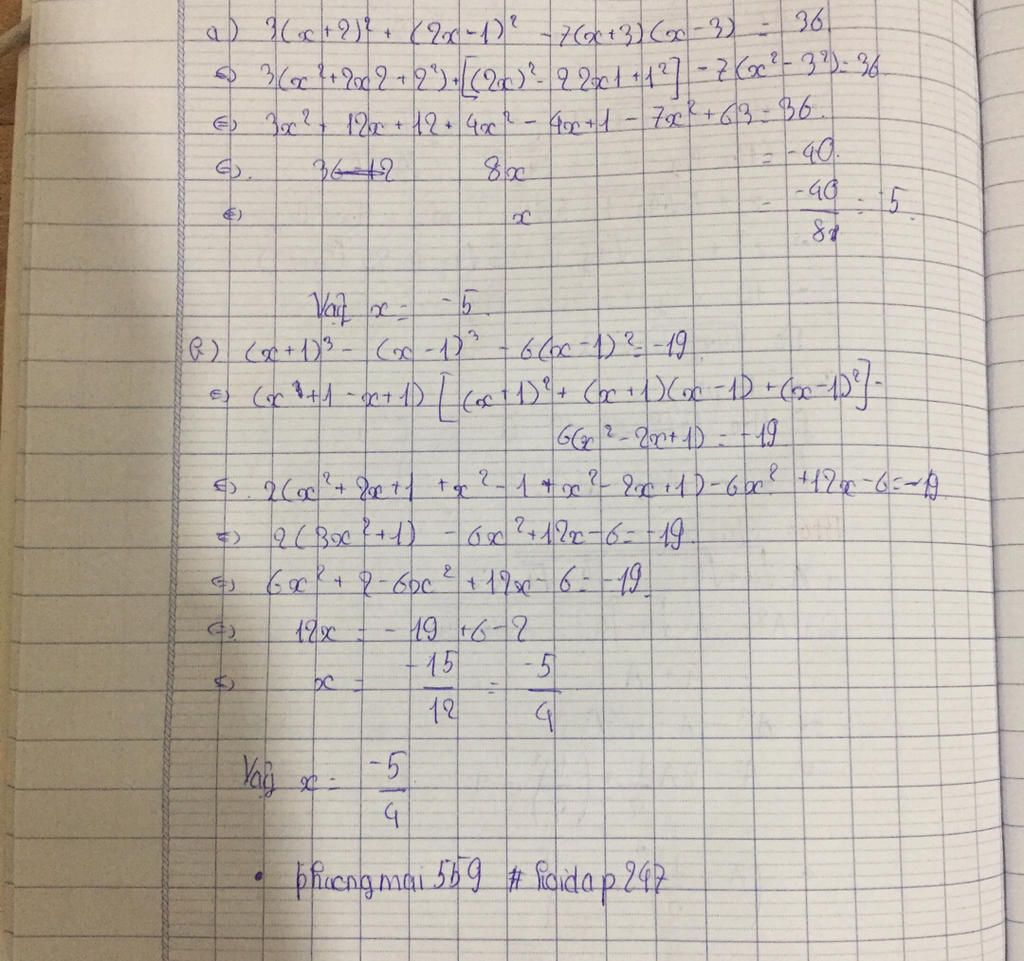 a) 3(x+2)² + (2x-1)² - 7(x+3)(x-3) = 36
⇔) 3(x²+2x2+2²)+[(2x)²-22x1+1²] - 7(x²-3²)=36
⇔) 3x²+ 12x+12+4x² - 4x+1 - 7x²+63=36.
⇔). 8x = -40.
⇔) x = -40/8 = 5.
Vậy x = -5.
b) (x+1)³ - (x-1)³ - 6(x-1)²=-19
⇔) (x+1-x+1) [(x+1)²+ (x+1)(x-1)+(x-1)²]-
6(x²-2x+1) = -19
⇔). 2(x²+2x+1 +x²-1+x²-2x+1)-6x² +12x-6=-19
⇔) 2(3x²+1) - 6x²+12x-6=-19.
⇔) 6x²+2-6x² +12x-6=-19.
⇔) 12x = -19 +6-2
⇔) x = -15/12 = -5/4
Vậy x = -5/4
• phuongmai559 # hoidap247